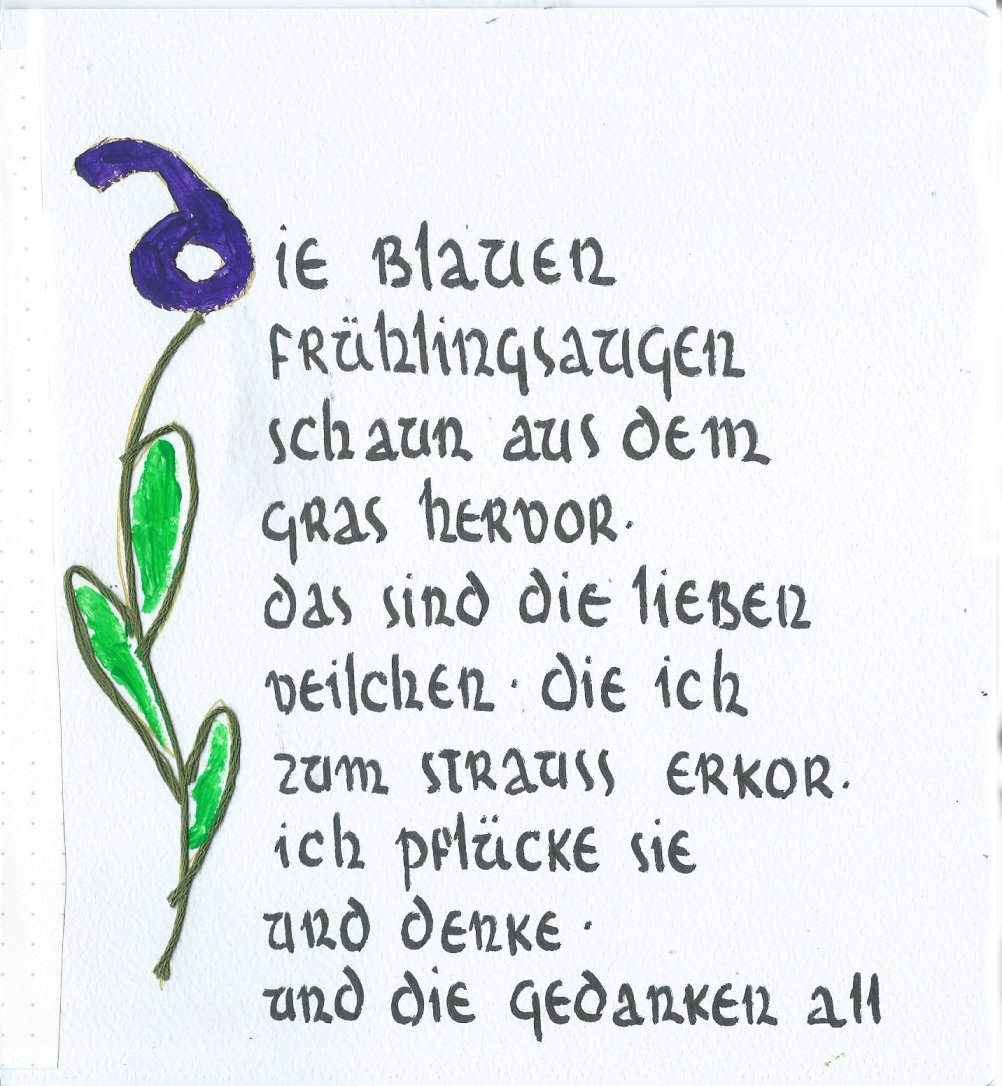 die blauen
frühlingsaugen
schaun aus dem
gras hervor.
das sind die lieben
veilchen · die ich
zum strauss erkor.
ich pflücke sie
und denke ·
und die gedanken all